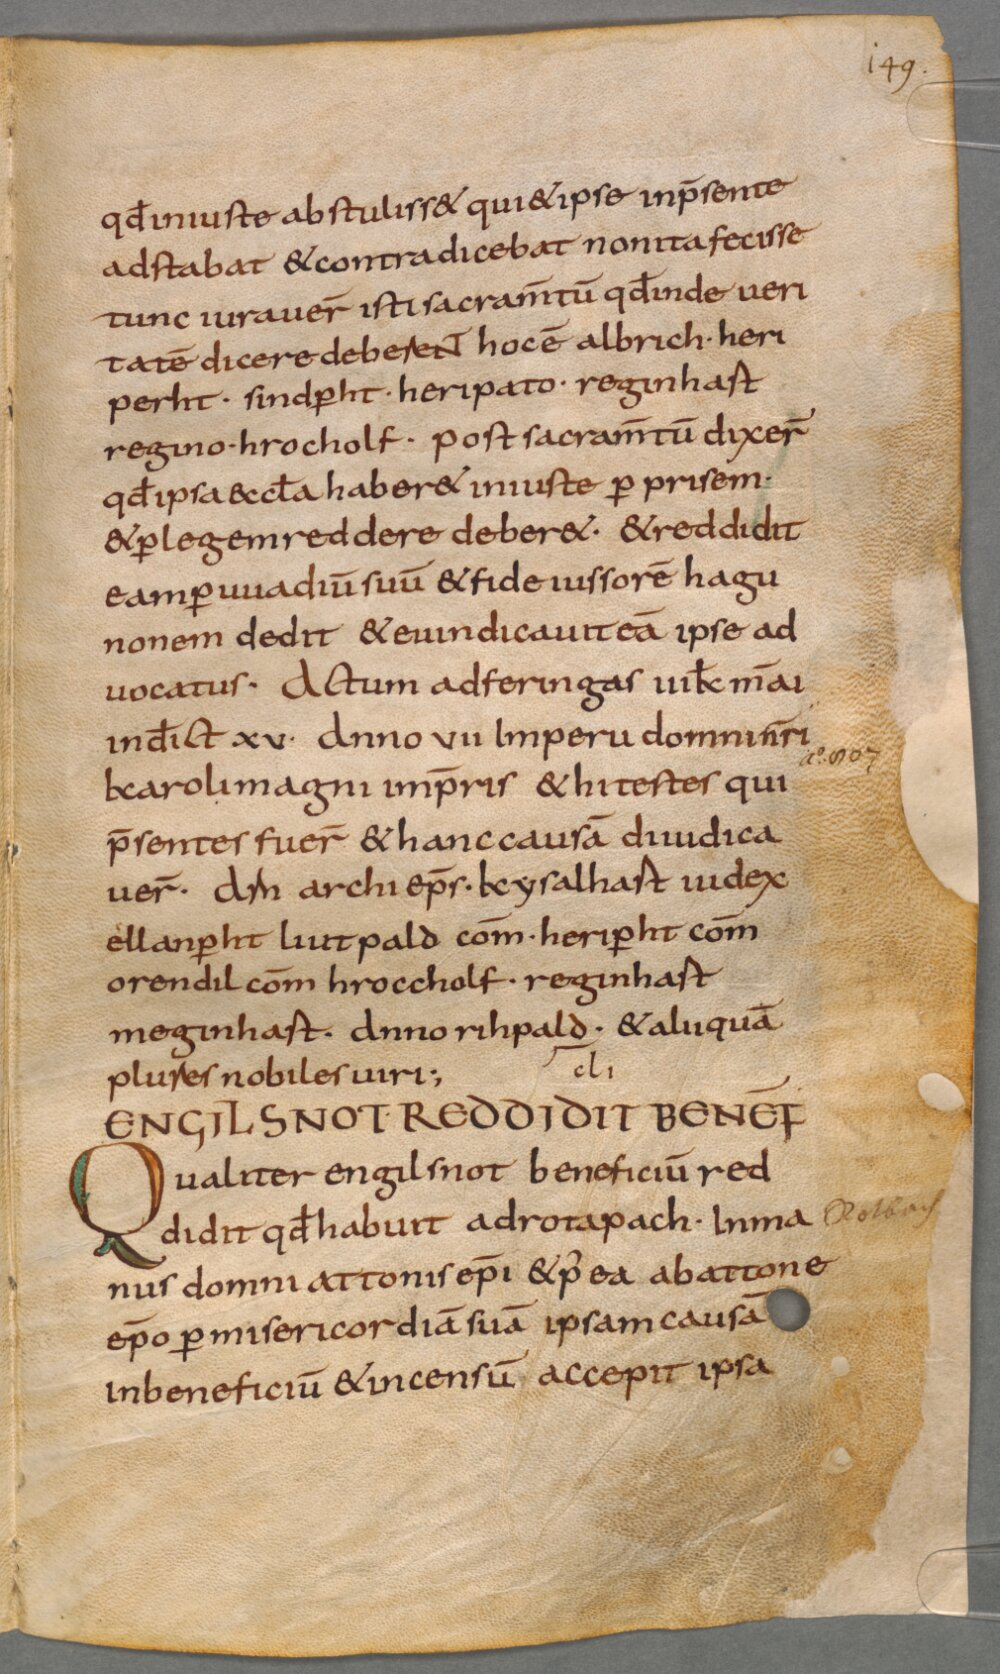 149.
qđ iniuste abstuliss& qui & ipse inp̄sente
adstabat & contradicebat non ita fecisse
tunc iurauer̄ isti sacram̄tū qđ inde ueri
tatē dicere deberent hoc ē albrich· heri
perht· sindp̱ht· heripato· reginhast
regino· hrocholf· post sacram̄tū dixer̄
qđ ipsa eccłā haber& iniuste ꝑ prisem·
& ꝑ legem reddere deber&· & reddidit
eam ꝑ uuadiū suū & fideiussorē hagu
nonem dedit & euindicauit eā ipse ad
uocatus· Actum ad feringas uii k̄ m̄ai
indict xv· Anno vii Imperii domni nr̄i
karoli magni imp̄ris & hi testes qui
a.º 807
p̄sentes fuer̄ & hanc causā diiudica
uer̄· Arn archi ep̄s· kysalhast iudex
ellanꝑht liutpald com̄· heriꝑht com̄
orendil com̄ hroccholf· reginhast
meginhast· Anno rihpald· & alii quā
plures nobiles uiri;
cli
ENGILSNOT REDDIDIT BENEF̄
Qualiter engilsnot beneficiū red
didit qđ habuit ad rotapach· In ma
Rotbach
nus domni attonis ep̄i & p̄ ea ab attone
ep̄o ꝑ misericordiā suā ipsam causā
in beneficiū & in censū accepit ipsa